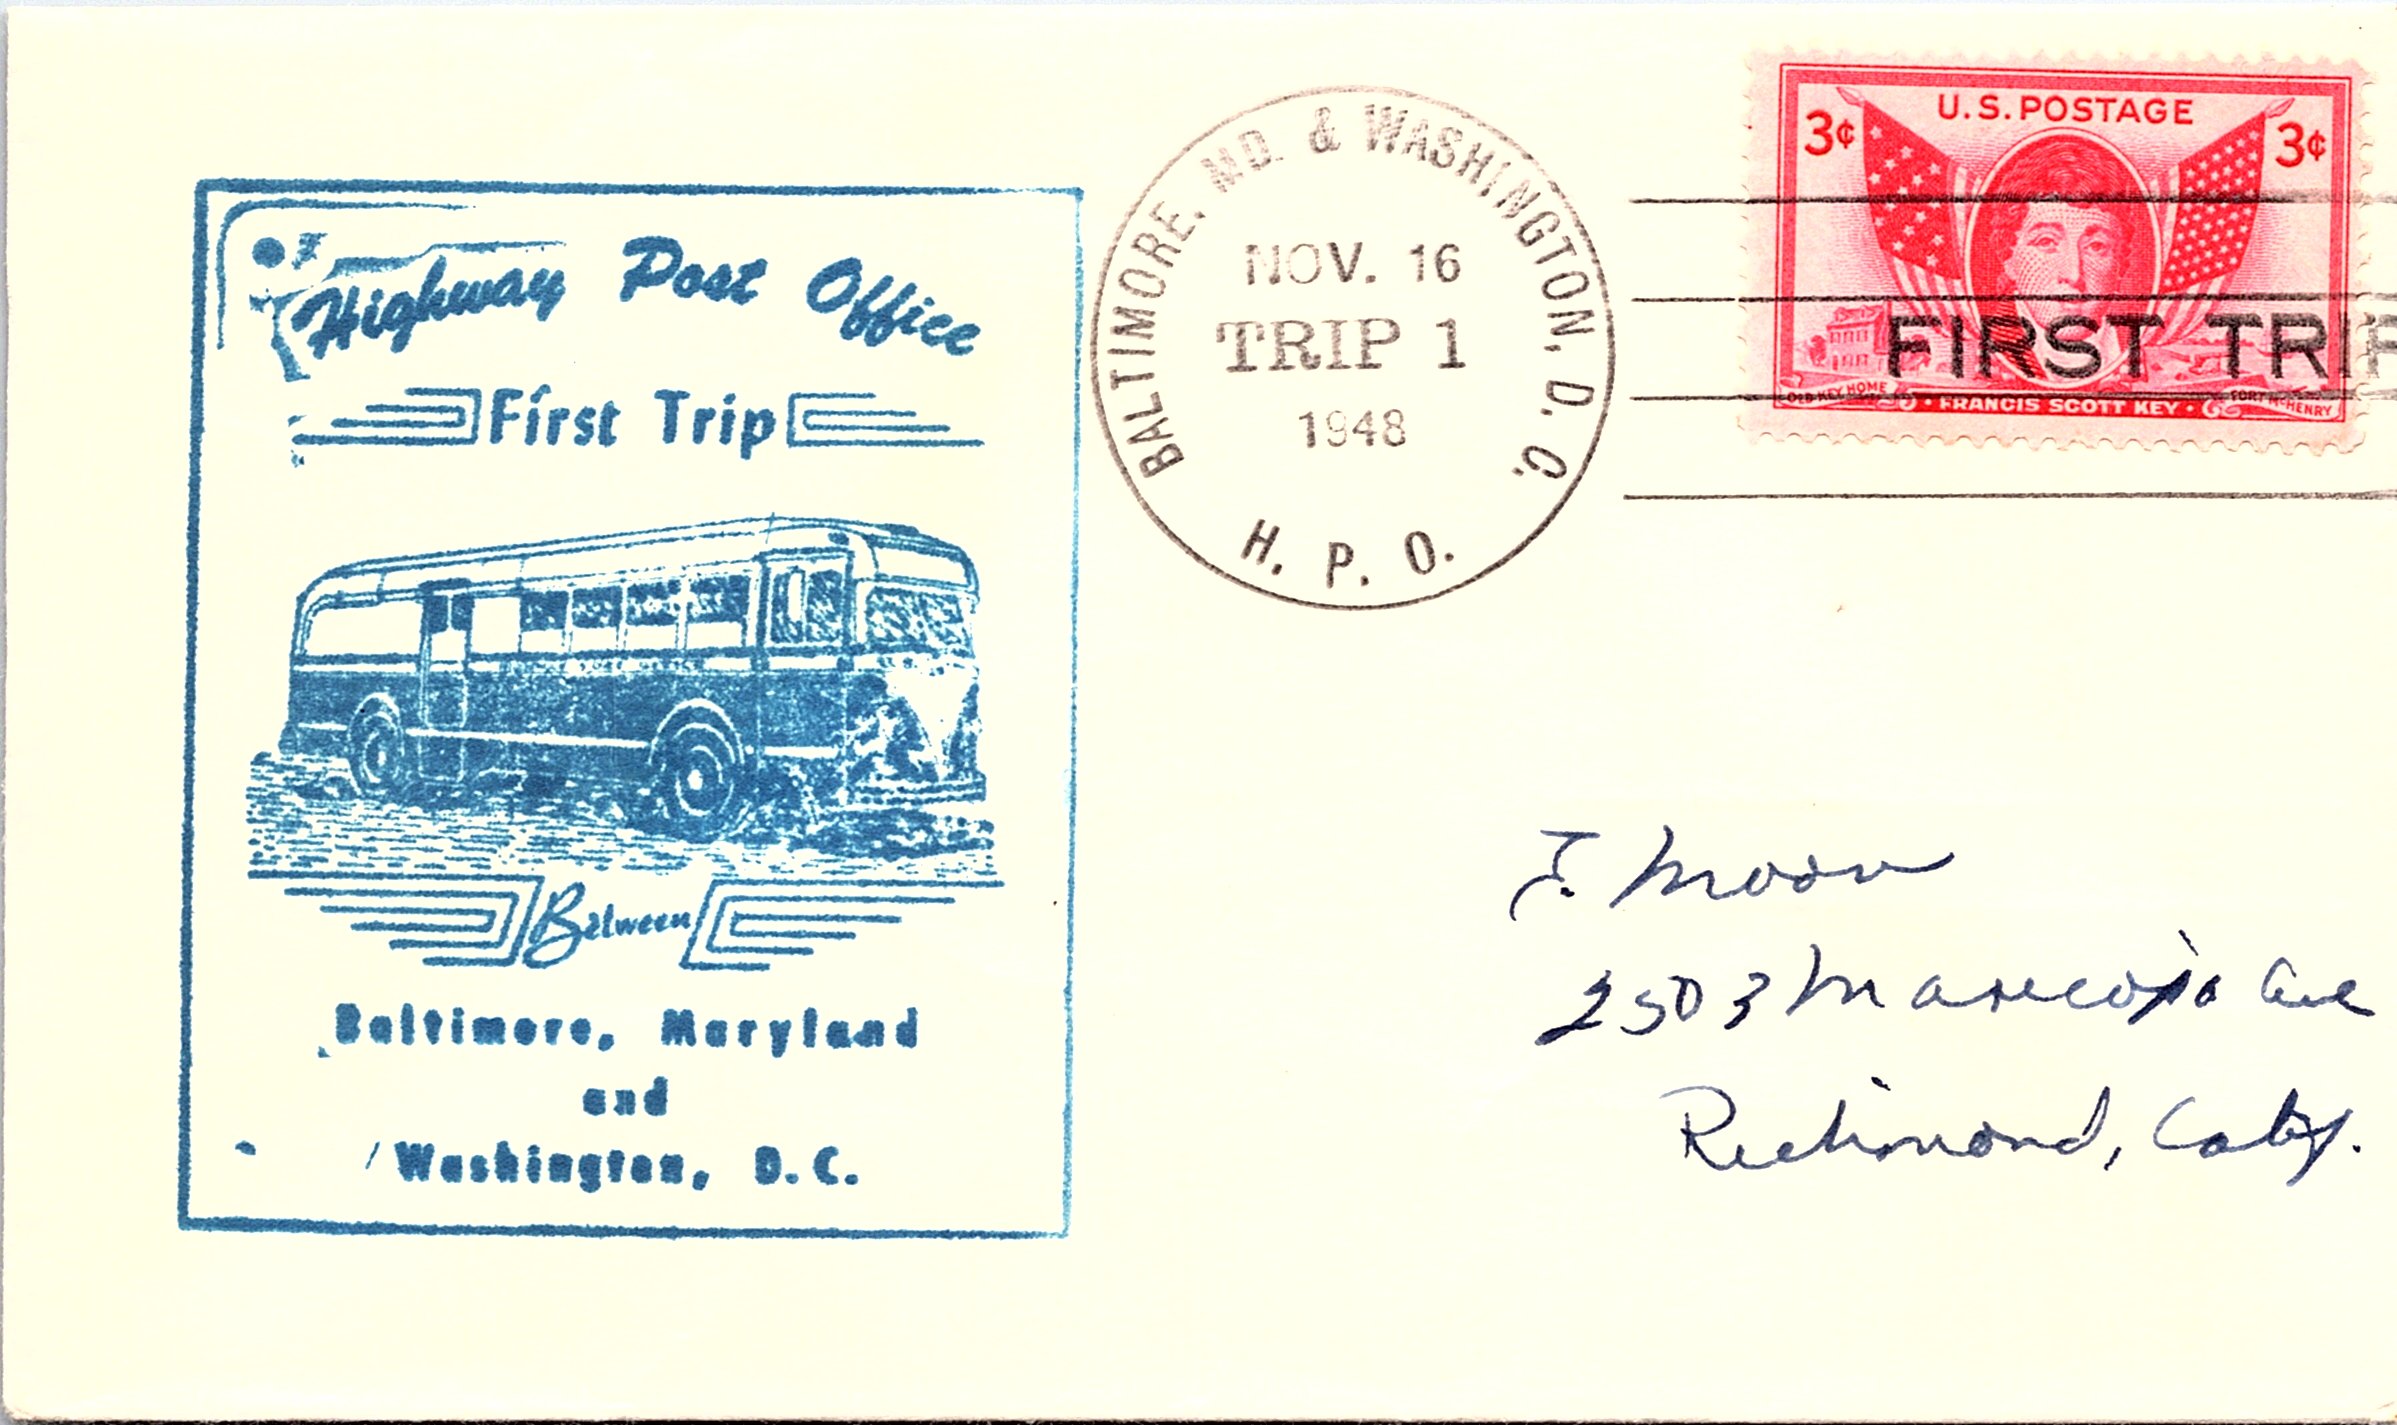 Highway Post Office
First Trip
Between
Baltimore, Maryland
and
Washington, D.C.
BALTIMORE, MD. & WASHINGTON, D. C.
NOV. 16
TRIP 1
1948
H. P. O.
U.S. POSTAGE
3¢ 3¢
FIRST TRIP
OLD KEY HOME
FRANCIS SCOTT KEY
FORT McHENRY
J. Moon
2503 Maricopa Ave
Richmond, Calif.